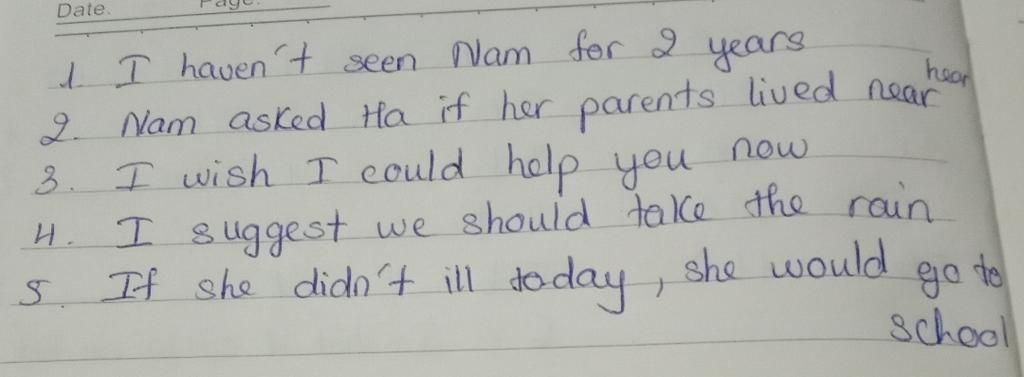 Date.
Page.
1. I haven't seen Nam for 2 years
2. Nam asked Ha if her parents lived near hear
3. I wish I could help you now
4. I suggest we should take the rain
5. If she didn't ill today, she would go to
school